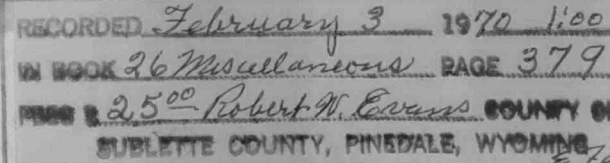 RECORDED February 3 1970 1:00
IN BOOK 26 Miscellaneous PAGE 379
FEES $ 25.00 Robert W. Evans COUNTY
SUBLETTE COUNTY, PINEDALE, WYOMING